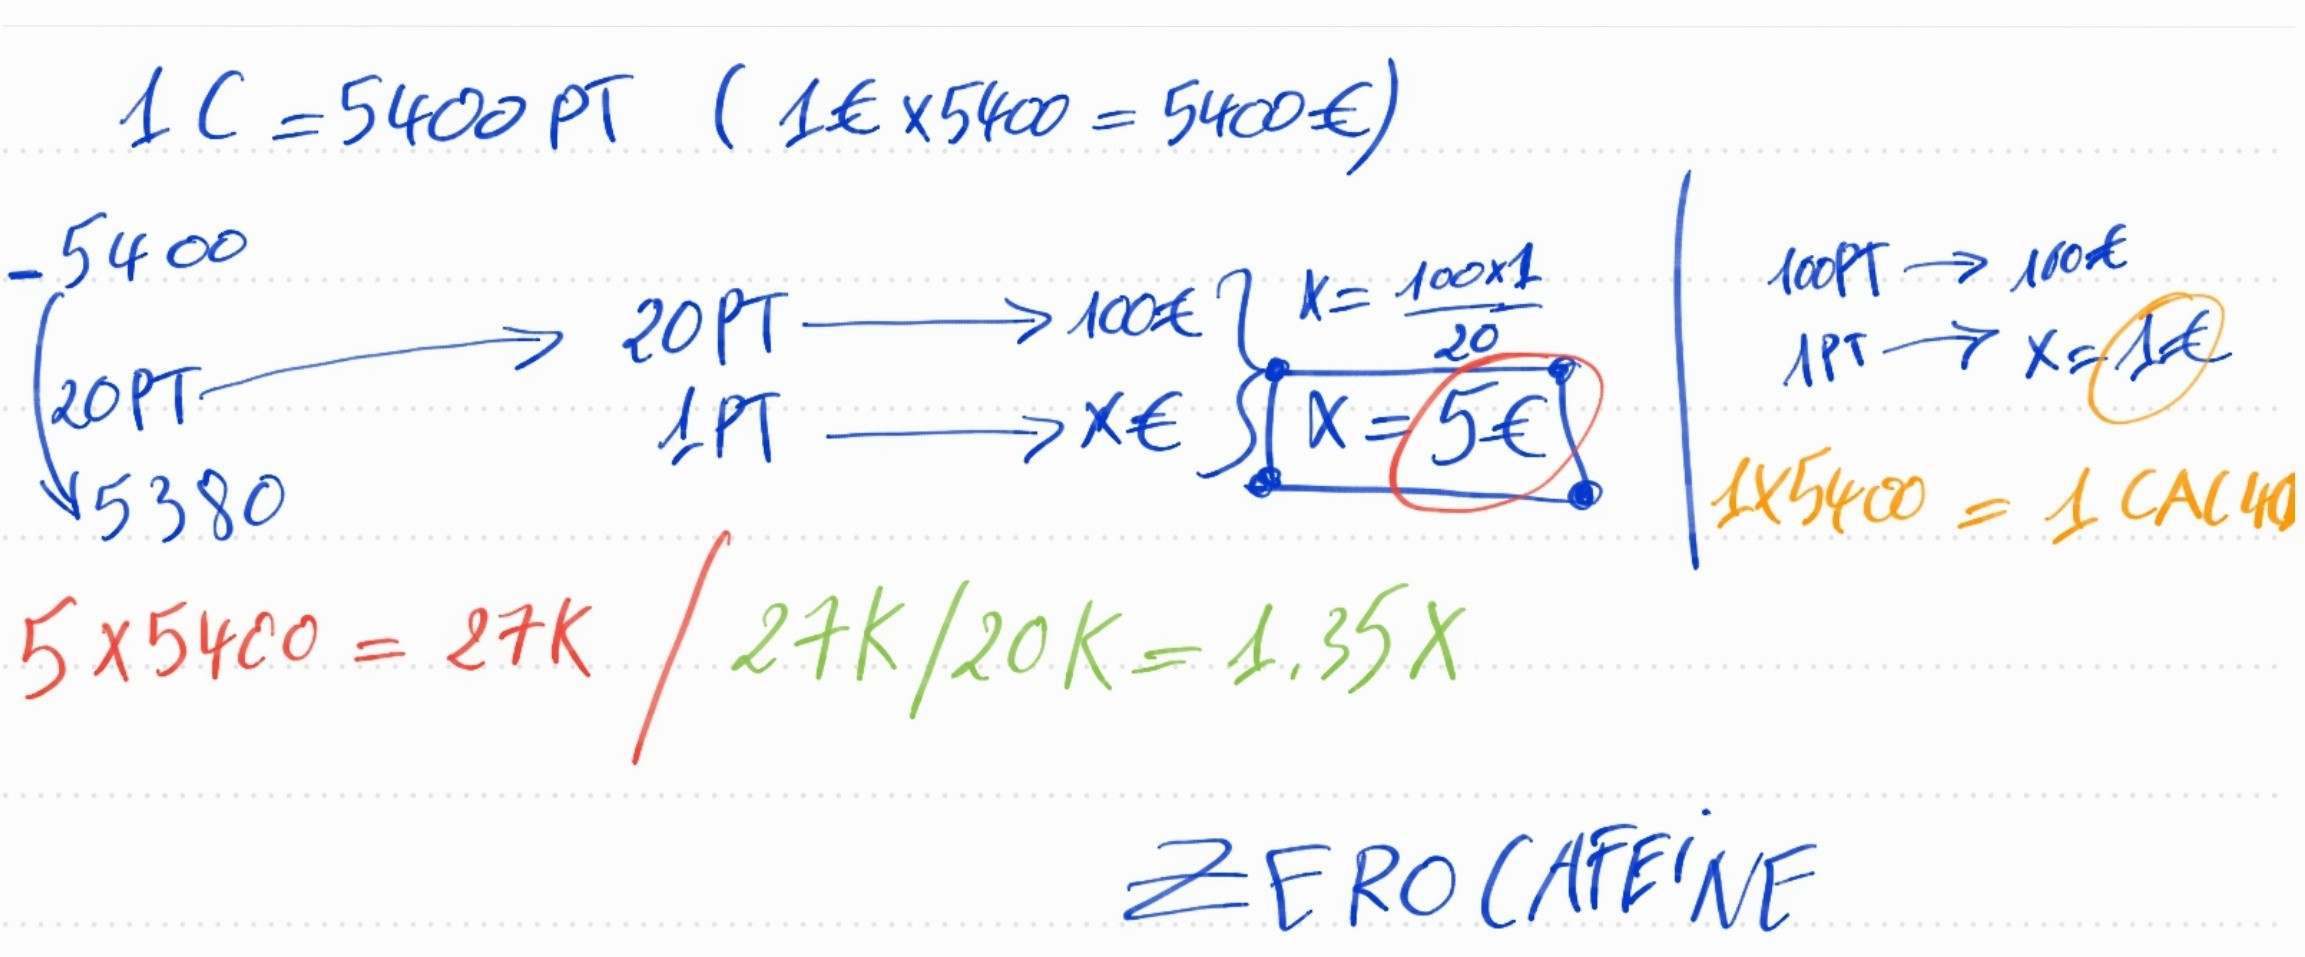 1 C = 5400 PT ( 1€ x 5400 = 5400€)
- 5400
20PT
5380
20PT → 100€
1PT → X€
X = 100x1
20
X = 5€
100PT → 100€
1PT → X = 1€
1X5400 = 1 CAC40
5 X 5400 = 27K / 27K/20K = 1.35X
ZERO CAFEINE